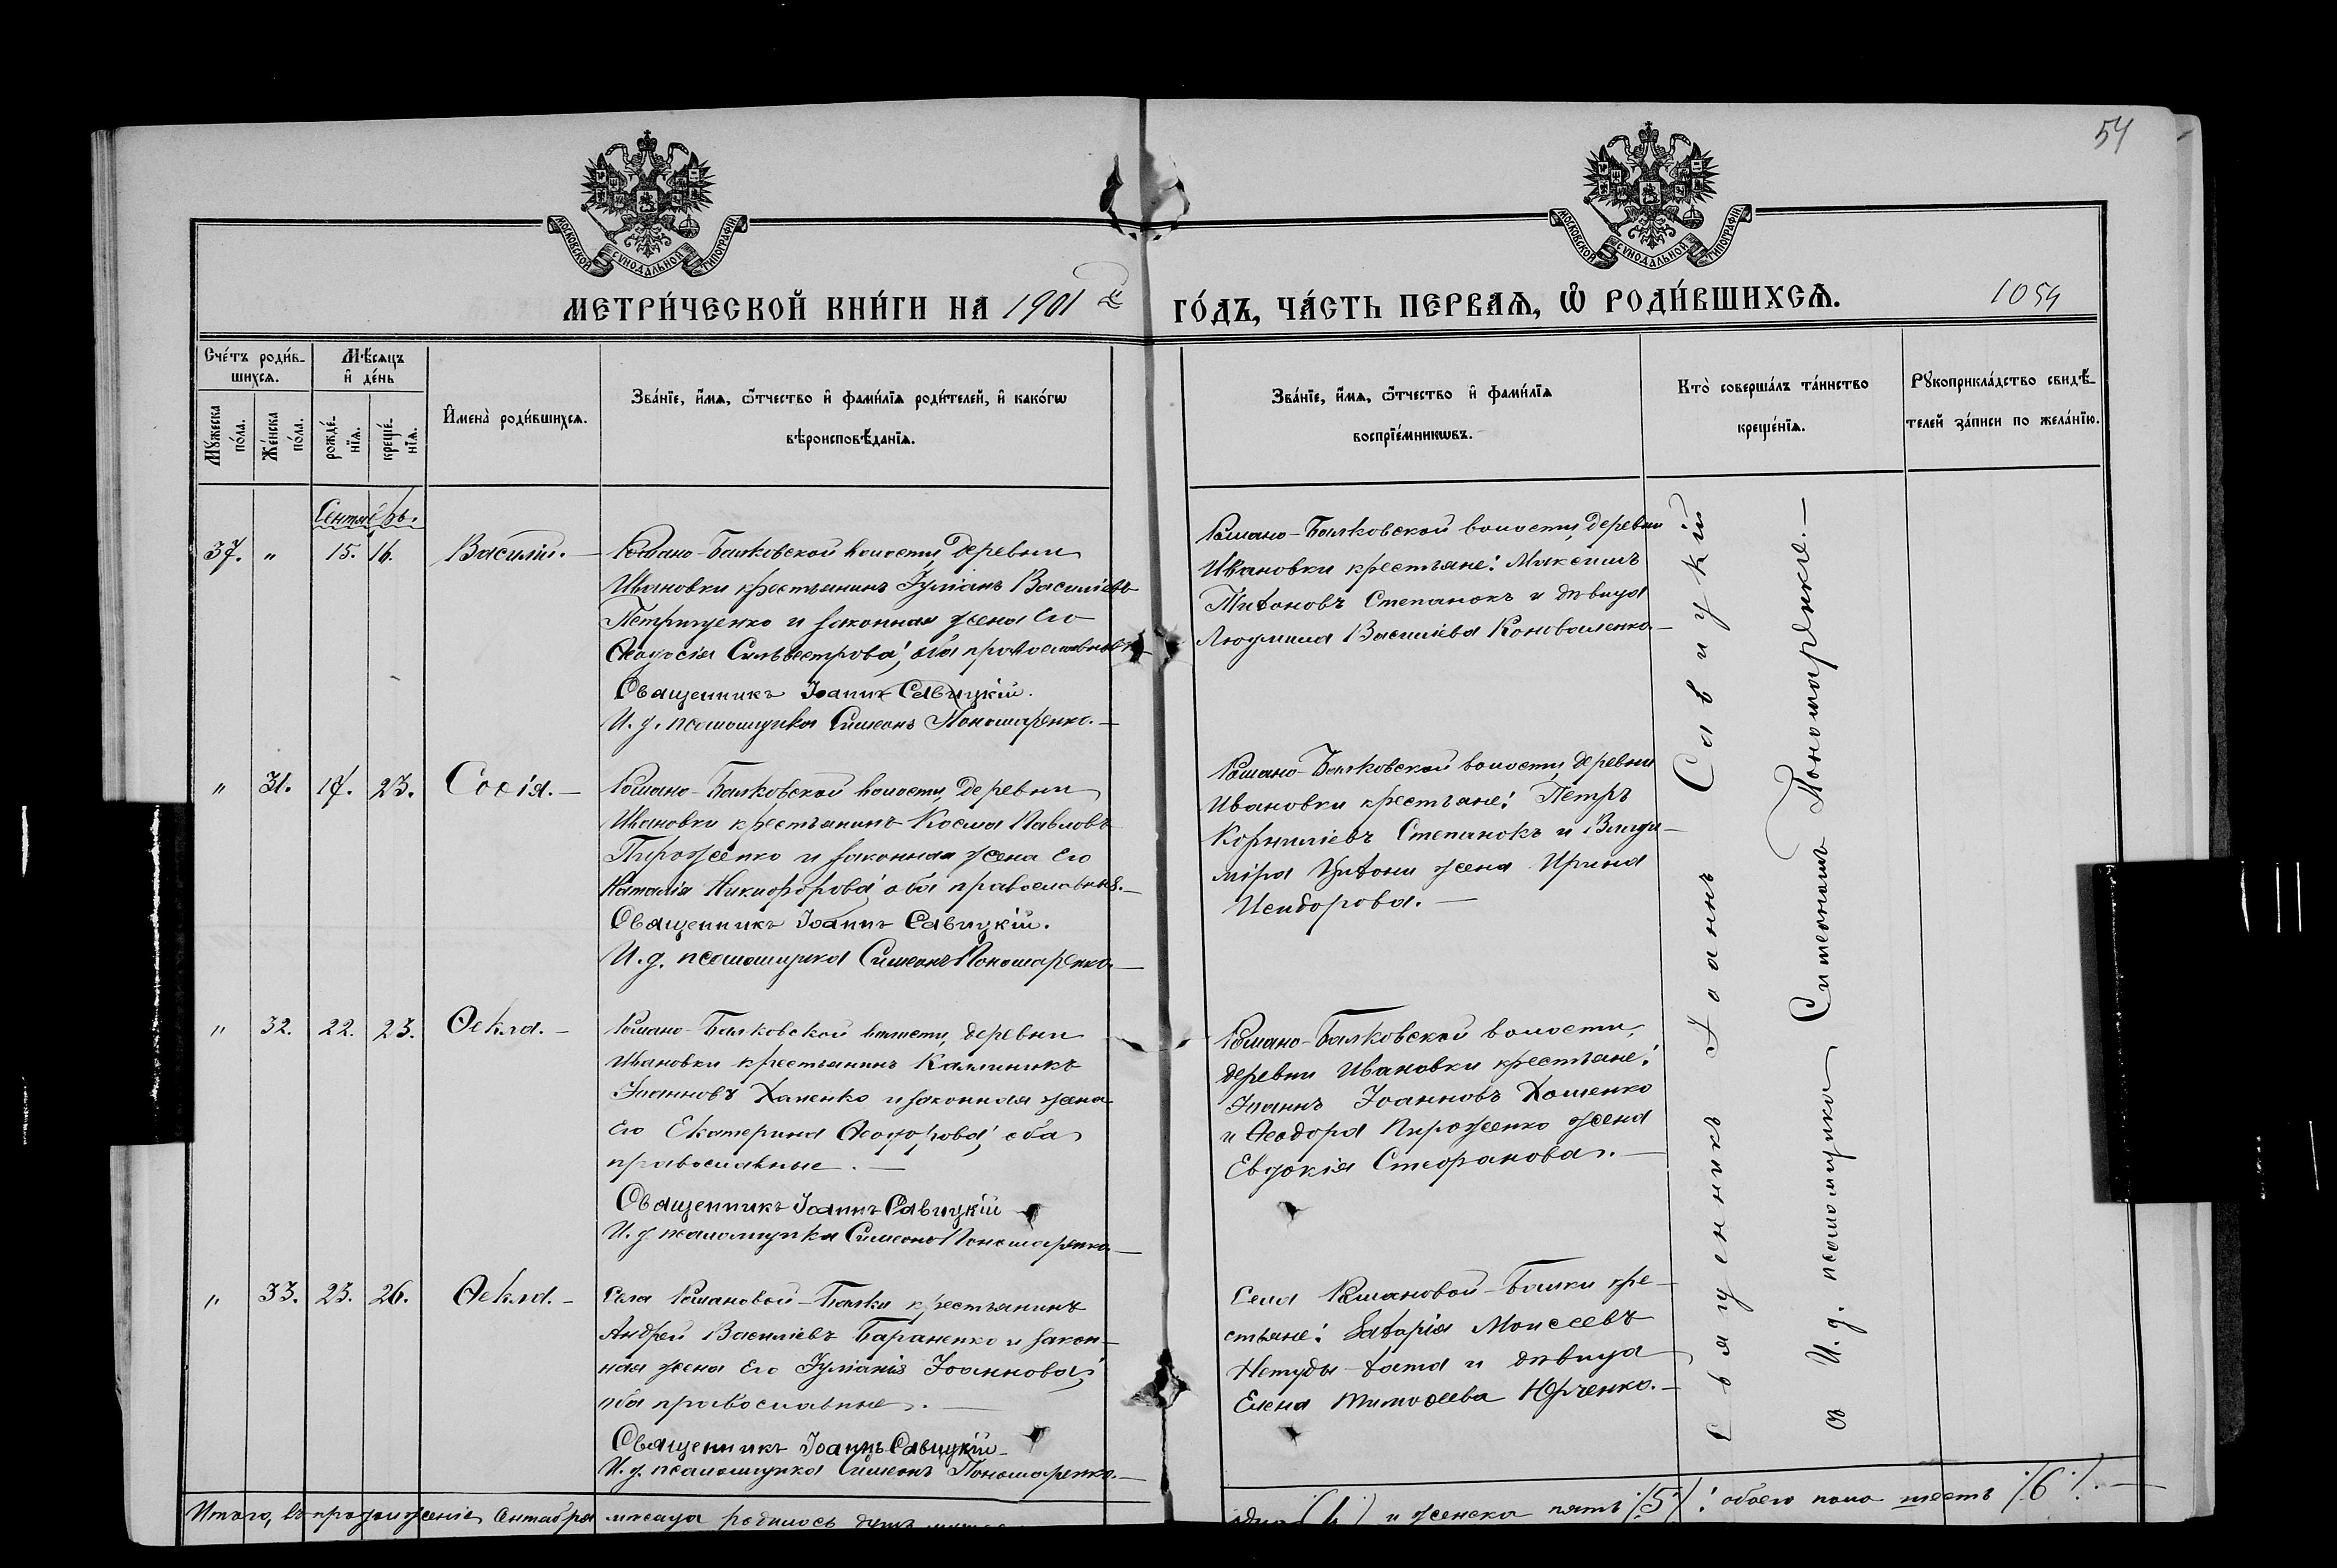 54
МОСКОВСКОЙ СУНОДАЛЬНОЙ ТИПОГРАФІИ
МОСКОВСКОЙ СУНОДАЛЬНОЙ ТИПОГРАФІИ
МЕТРИ́ЧЕСКОЙ КНИ́ГИ НА 1901 й ГО́ДЪ, ЧА́СТЬ ПЕРВАѦ, Ѡ РОДИ́ВШИХСѦ.
1054
Сче́тъ роди́в-
шихсѧ.
Мѣ́сѧцъ
и҆ де́нь
Мꙋ́жеска по́ла.
Же́нска по́ла.
рожде́-
нїѧ.
креще́-
нїѧ.
И҆мена̀ роди́вшихсѧ.
Зва́нїе, и҆́мѧ, ѻ҆́тчество и҆ фами́лїѧ роди́телей, и҆ како́гѡ
вѣроисповѣ́данїѧ.
Зва́нїе, и҆́мѧ, ѻ҆́тчество и҆ фами́лїѧ
воспрїе́мникѡвъ.
Кто̀ соверша́лъ та́инство
креще́нїѧ.
Рꙋкоприкла́дство свидѣ́-
телей за́писи по жела́нїю.
Сентябрь.
37. " 15. 16. Василій. —
Романо-Балковской волости, деревни
Ивановки крестьянинъ Іуліанъ Василіевъ
Петрищенко и законная жена его
Ѳеодосія Сильвестрова; оба православные
Священникъ Іоаннъ Савицкій.
И. д. псаломщика Симеонъ Пономаренко. —
Романо-Балковской волости, деревни
Ивановки крестьяне: Максимъ
Титоновъ Степанокъ и дѣвица
Людмила Василіева Коноваленко. —
" 31. 17. 23. Софія. —
Романо-Балковской волости, деревни
Ивановки крестьянинъ Косма Павловъ
Пироженко и законная жена его
Наталія Никифорова; оба православные. —
Священникъ Іоаннъ Савицкій.
И. д. псаломщика Симеонъ Пономаренко. —
Романо-Балковской волости, деревни
Ивановки крестьяне: Петръ
Корниліевъ Степанокъ и Влади-
міра жена Ирина
Исидорова. —
" 32. 22. 23. Ѳекла. —
Романо-Балковской волости, деревни
Ивановки крестьянинъ Каллиникъ
Іоанновъ Хоменко и законная жена
его Екатерина Ѳеодорова; оба
православные. —
Священникъ Іоаннъ Савицкій
И. д. псаломщика Симеонъ Пономаренко. —
Романо-Балковской волости,
деревни Ивановки крестьяне:
Іоаннъ Іоанновъ Хоменко
и Ѳеодора Пироженко жена
Евдокія Стефанова. —
" 33. 23. 26. Ѳекла. —
Села Романовой-Балки крестьянинъ
Андрей Василіевъ Бараненко и закон-
ная жена его Іуліанія Іоаннова;
оба православные. —
Священникъ Іоаннъ Савицкій
И. д. псаломщика Симеонъ Пономаренко. —
Села Романовой-Балки кре-
стьяне: Захарія Моисеевъ
Непуды-хата и дѣвица
Елена Тимоѳеева Юрченко. —
Священникъ Іоаннъ Савицкій
съ И. д. псаломщика Симеономъ Пономаренко. —
Итого, въ продолженіе Сентября мѣсяца родилось одинъ (1) и женска пять (5); обоего пола шесть (6). —